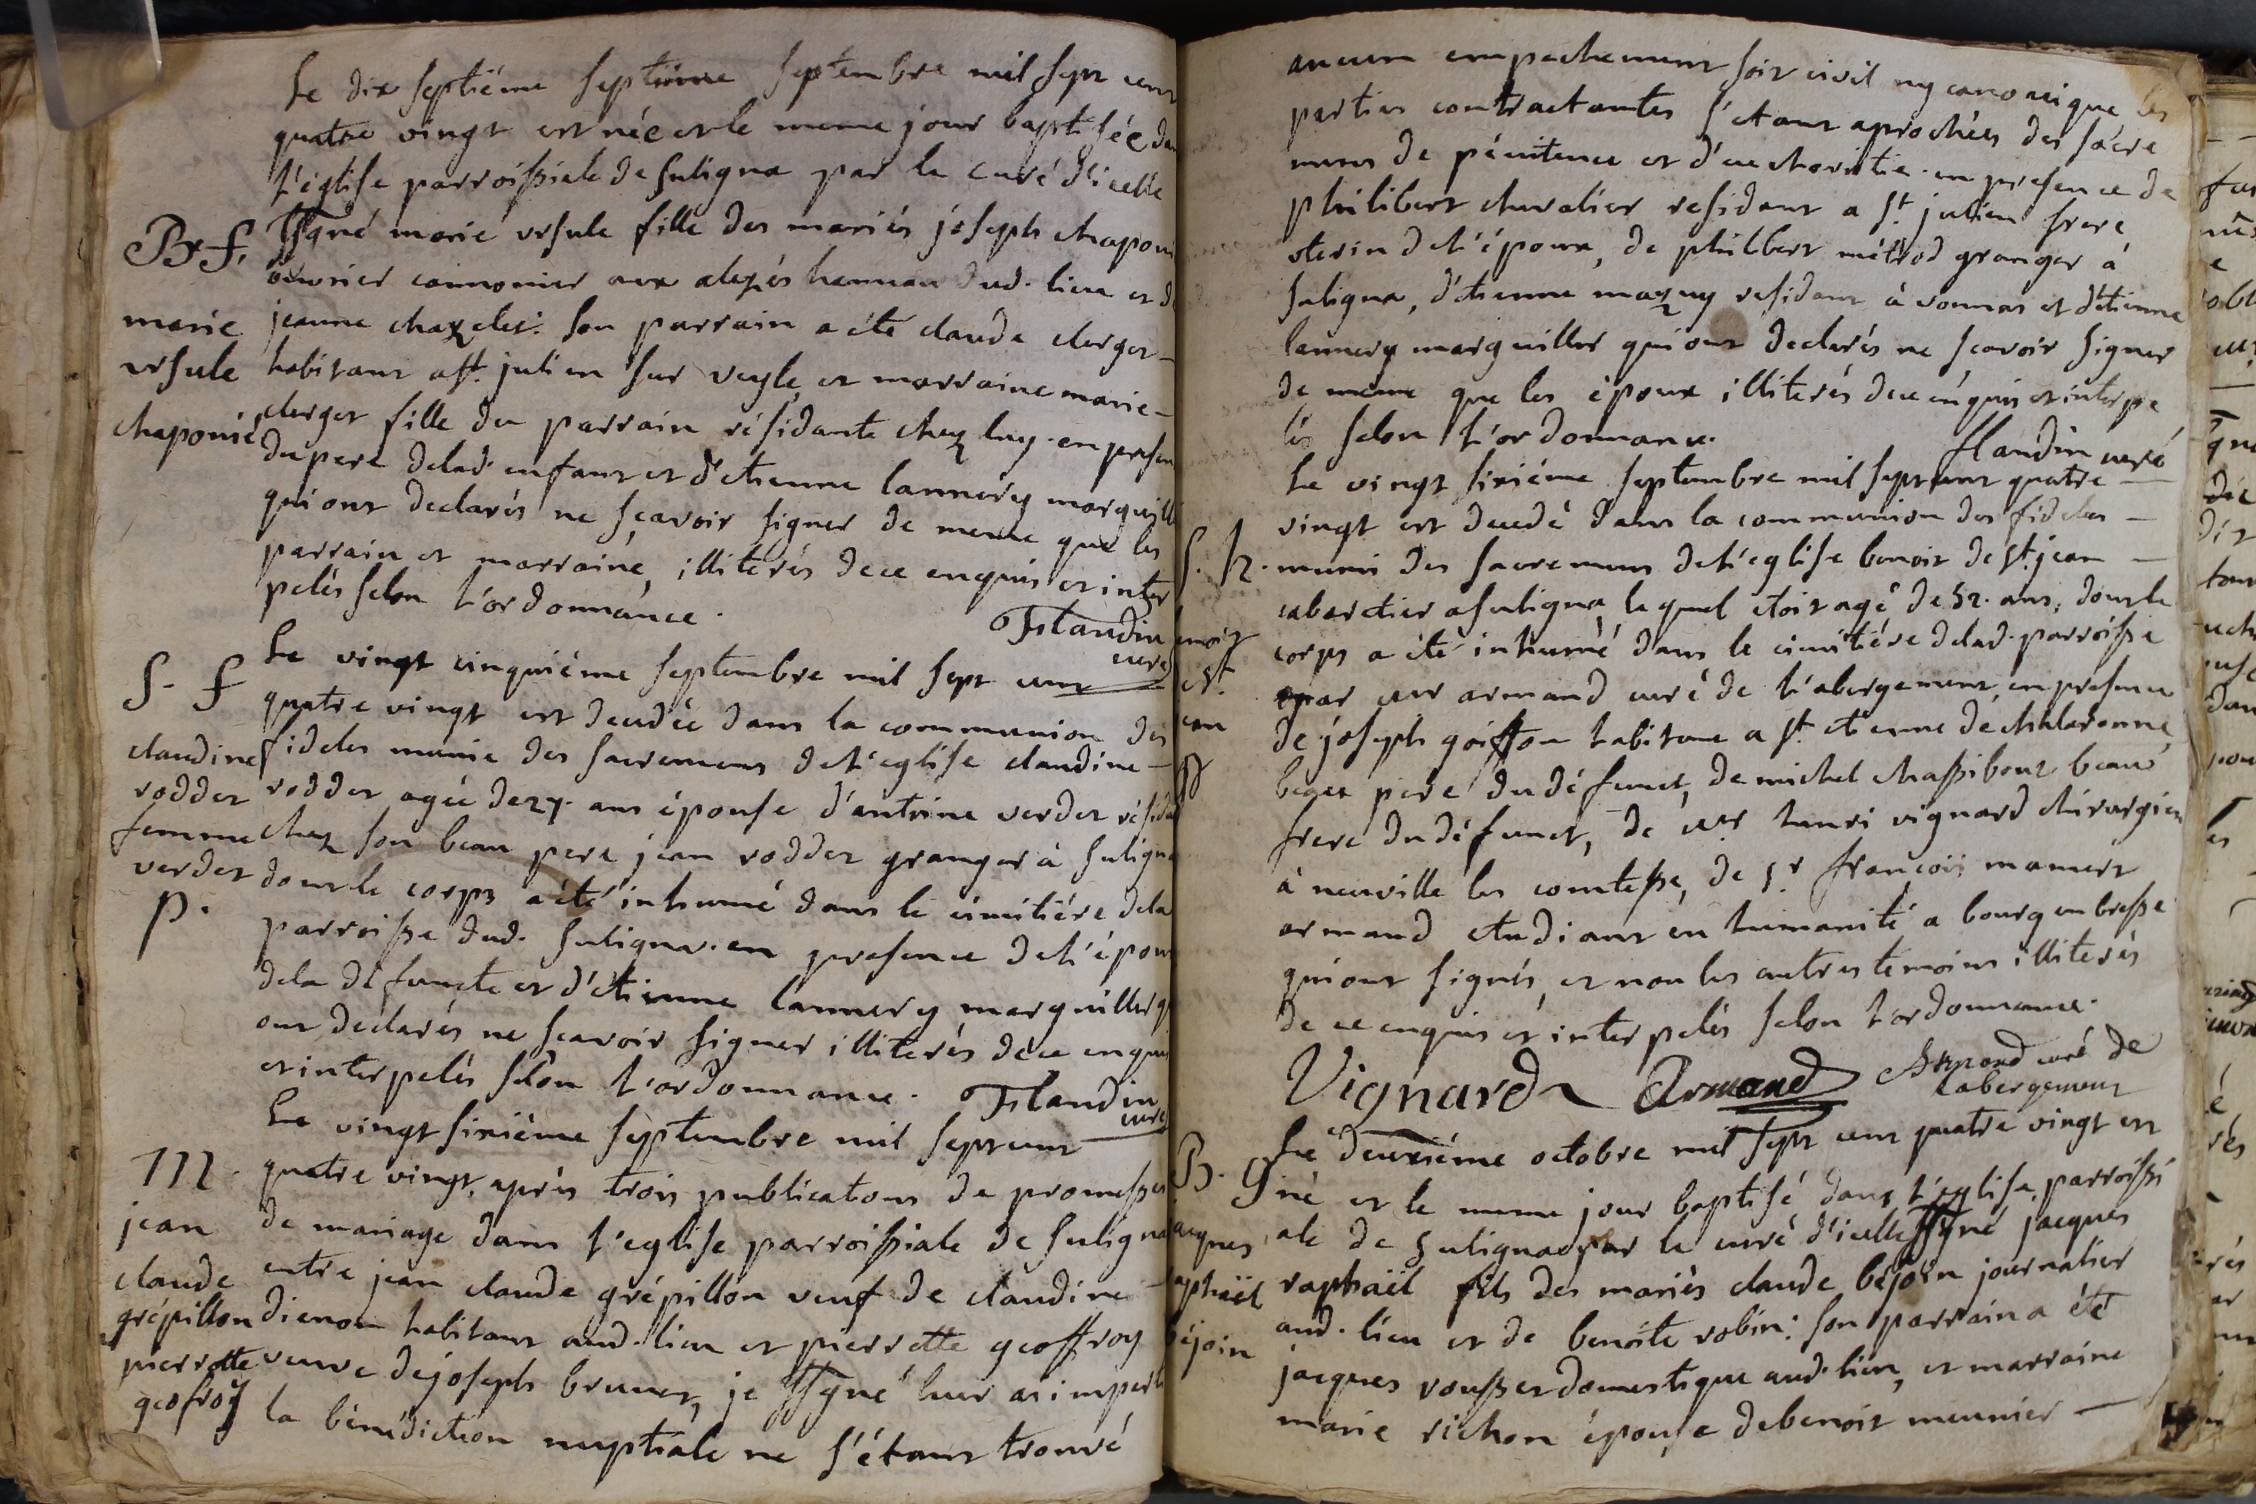 Le dix septiéme septiéme septembre mil sept cent
quatre vingt est née et le meme jour baptisée dans
l'église parroissiale de suligna par le curé d'icelle
B. f. ssgné marie ursule fille des mariés joseph chaponié
ouvrier cannonier aux dud. lieu et de
marie jeanne chazelet. son parrain a été claude clerget
ursule habitant a st. julien sur veyle, et marraine marie
chaponié clerget fille du parrain résidante chez luy. en presence
du pere delad. enfant et d'etienne lannery marguillier
qui ont declarés ne scavoir signer de meme que les
parrain et marraine, illiterés de ce enquis et inter
pelés selon l'ordonnance.
Flandin
curé
Le vingt cinquiéme septembre mil sept cent
S. f quatre vingt est decedée dans la communion des
claudine fideles munie des sacremens de l'eglise claudine
roddet roddet agée de 27. ans épouse d'antoine verdet résidante
femme chez son beau pere jean roddet granger à suligna
verdet dont le corps a été inhumé dans le cimitiére dela
p. parroisse dud. suligna. en presence de l'époux
dela défuncte et d'etienne lannery marguillier qui
ont declarés ne scavoir signer illiterés de ce enquis
et interpelés selon l'ordonnance. Flandin
curé
Le vingt sixiéme septembre mil sept cent
M. quatre vingt, après trois publications de promesses
jean de mariage dans l'eglise parroissiale de suligna
claude entre jean claude grépillon veuf de claudine
grépillon dienon habitant aud. lieu et pierrette geoffroy
pierrette veuve de joseph brunet, je ssgné leur ai imparti
geofroy la bénédiction nuptiale ne s'étant trouvé
aucun empechement soit civil ny canonique les
parties contractantes s'etant aprochées des sacre
mens de pénitence et d'eucharistie. en presence de
philibert chevalier residant a st. julien frere
uterin de l'époux, de philibert métrod granger à
suligna, d'etienne mazuy residant à vonnas et d'etienne
lannery marguillier qui ont declarés ne scavoir signer
de meme que les époux illiterés de ce enquis et interpe
lés selon l'ordonnance.
flandin curé
Le vingt sixiéme septembre mil sept cent quatre
vingt est decedé dans la communion des fideles
S. h. muni des sacremens de l'eglise benoit de st. jean
cabaretier a suligna, le quel etoit agé de 52. ans, dont le
enoit corps a été inhumé dans le cimitiére delad. parroisse
st. par mr armand curé de l'abergement, en presence
ean de joseph goiffon habitant a st. etienne de chalaronne,
p beau pere du défunct, de michel chassibout beau
frere du défunct, de mr henri vignard chirurgien
à neuville les comtesse, de sr françois mamert
armand etudiant en humanité a bourg en bresse
qui ont signés, et non les autres temoins illiterés
de ce enquis et interpelés selon l'ordonnance.
Vignard Armand Armand curé de
labergement
Le deuxiéme octobre mil sept cent quatre vingt est
B. G né et le meme jour baptisé dans l'eglise parroissi
acques ale de suligna par le curé d'icelle ssgné jacques
aphaël raphaël fils des mariés claude béjoin journalier
béjoin aud. lieu et de benoite robin: son parrain a été
jacques rousset domestique aud. lieu, et marraine
marie richon épouse de benoit meunier